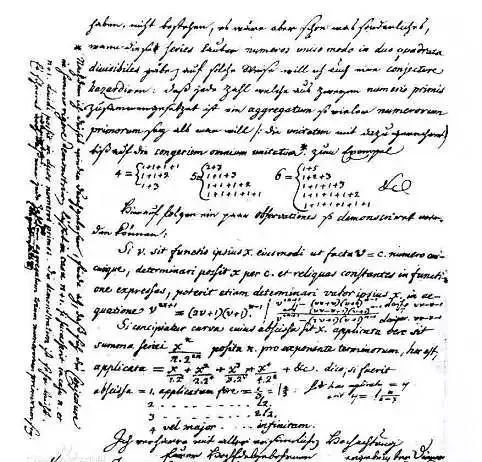 haben, nicht beystehen, es wäre aber schon was sonderliches,
wann eine series lauter numeros unico modo in duo quadrata
divisibiles gäbe. auf solche Weise will ich auch eine conjecture
hazardiren: daß jede Zahl welche aus zweyen numeris primis
zusammengesetzt ist ein aggregatum so vieler numerorum
primorum sey als man will (die unitatem mit dazu gerechnet)
biß auf die congeriem omnium unitatum* zum Exempel
4 = { 1+1+1+1 / 1+1+2 / 1+3
5 = { 2+3 / 1+1+3 / 1+1+1+2 / 1+1+1+1+1
6 = { 1+5 / 1+2+3 / 1+1+1+3 / 1+1+1+1+2 / 1+1+1+1+1+1 &c
Hierauf folgen ein paar observationes so demonstriret werden
können:
Si v. sit functio ipsius x. eiusmodi ut facta v = c. numero cuicunque,
determinari possit x per c. et reliquas constantes in functione
expressas, poterit etiam determinari valor ipsius x. in aequatione
v²ⁿ⁺¹ = (2v+1)(v+1)ⁿ⁻¹.
Si concipiatur curva cuius abscissa sit x. applicata vero sit
summa seriei xⁿ/n.2²ⁿ posita n. pro exponente terminorum, hoc est,
applicata = x/1.2² + x²/2.2⁴ + x³/3.2⁶ + x⁴/4.2⁸ + &c. dico, si fuerit
abscissa = 1. applicatam fore
2 - - - - - - - l2.
3 - - - - - - - 2l2.
4 vel major - - infinitam.
Ich verharre mit aller Hochachtung
* Nachdem ich dieses wieder durchgelesen, finde ich daß sich die conjecture
in summo rigore demonstriren läßet in casu n+1. si successerit in casu n. et
n+1. dividi possit in duos numeros primos. Die demonstration ist sehr leicht.
Es scheinet wenigstens daß eine jede Zahl ein aggregatum trium numerorum primorum sey